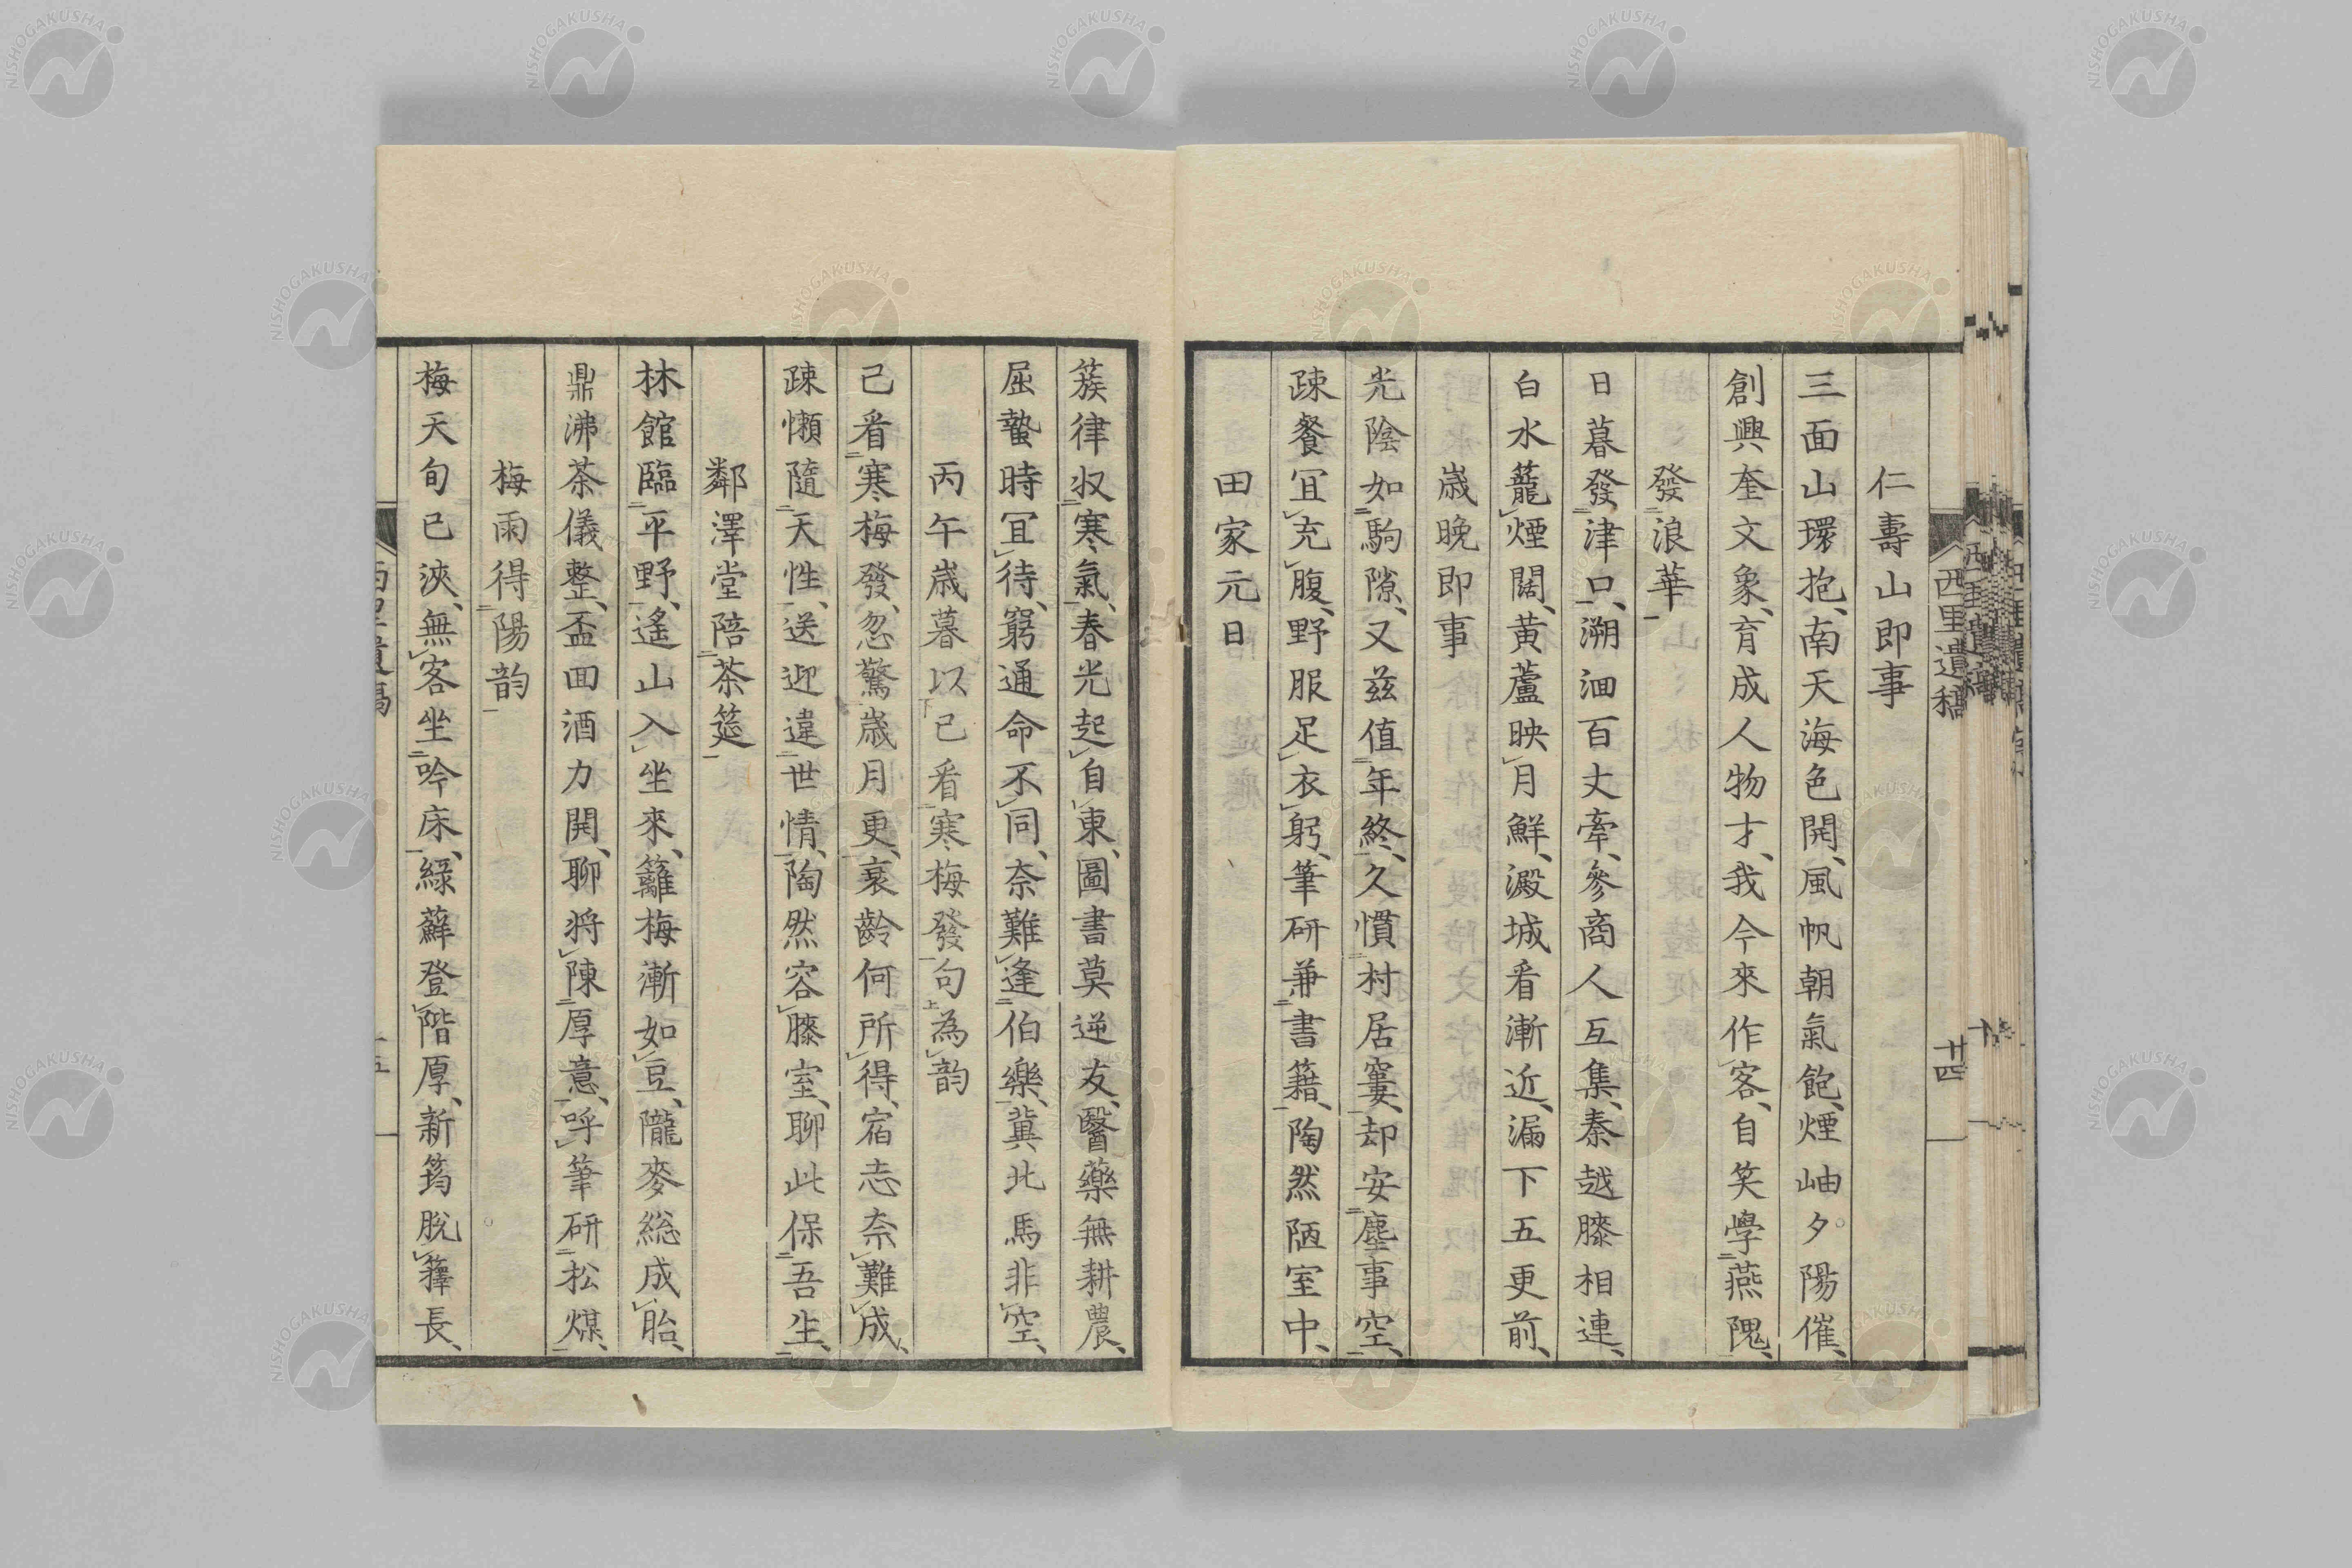 西里遺稿
廿四
仁壽山即事
三面山環抱、南天海色開、風帆朝氣飽、煙岫夕陽催、
創興奎文象、育成人物才、我今來作客、自笑學燕隗、
發浪華
日暮發津口、溯洄百丈牽、參商人互集、秦越膝相連、
白水籠煙闊、黃蘆映月鮮、澱城看漸近、漏下五更前、
歲晚即事
光陰如駒隙、又兹值年終、久慣村居窶、却安塵事空、
疎餐冝充腹、野服足衣躬、筆研兼書籍、陶然陋室中、
田家元日
簇律収寒氣、春光起自東、圖書莫逆友、醫藥無耕農、
屈蟄時冝待、窮通命不同、奈難逢伯樂、冀北馬非空、
丙午歲暮以已看寒梅發句為韵
已看寒梅發、忽驚歲月更、衰齡何所得、宿志奈難成、
疎懶隨天性、送迎違世情、陶然容膝室、聊此保吾生、
鄰澤堂陪茶筵
林館臨平野、遙山入坐來、籬梅漸如豆、隴麥総成胎、
鼎沸茶儀整、盃回酒力開、聊將陳厚意、呼筆研松煤、
梅雨得陽韵
梅天旬已浹、無客坐吟床、綠蘚登階厚、新筠脫籜長、
NISHOGAKUSHA